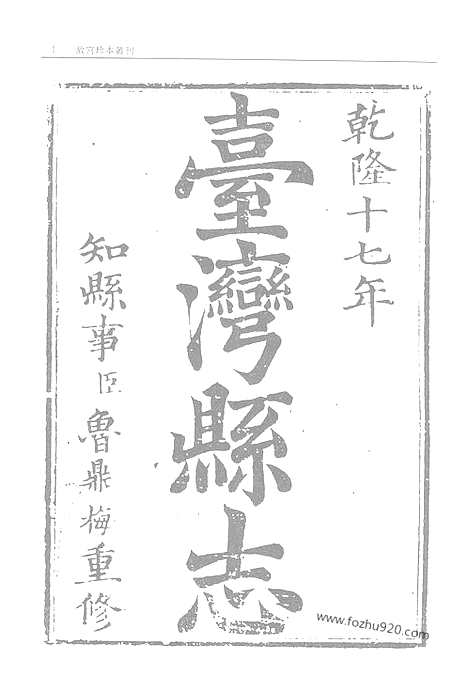 1 故宮珍本叢刊
乾隆十七年
臺灣縣志
知縣事臣魯鼎梅重修
www.fozhu920.com